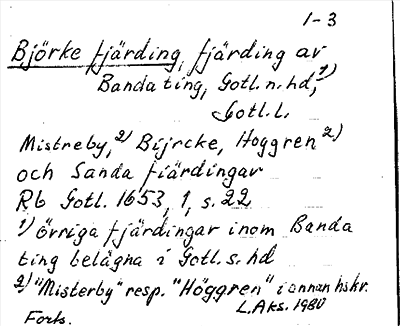 1-3
Björke fjärding, fjärding av
Banda ting, Gotl. n. hd, 1)
Gotl. l.
Mistreby, 2) Bijrcke, Hoggren 2)
och Sanda fiärdingar
Rb Gotl. 1653, 1, s. 22
1) övriga fjärdingar inom Banda
ting belägna i Gotl. s. hd
2) "Misterby" resp. "Höggren" i annan hskr.
L. Aks. 1980
Forts.